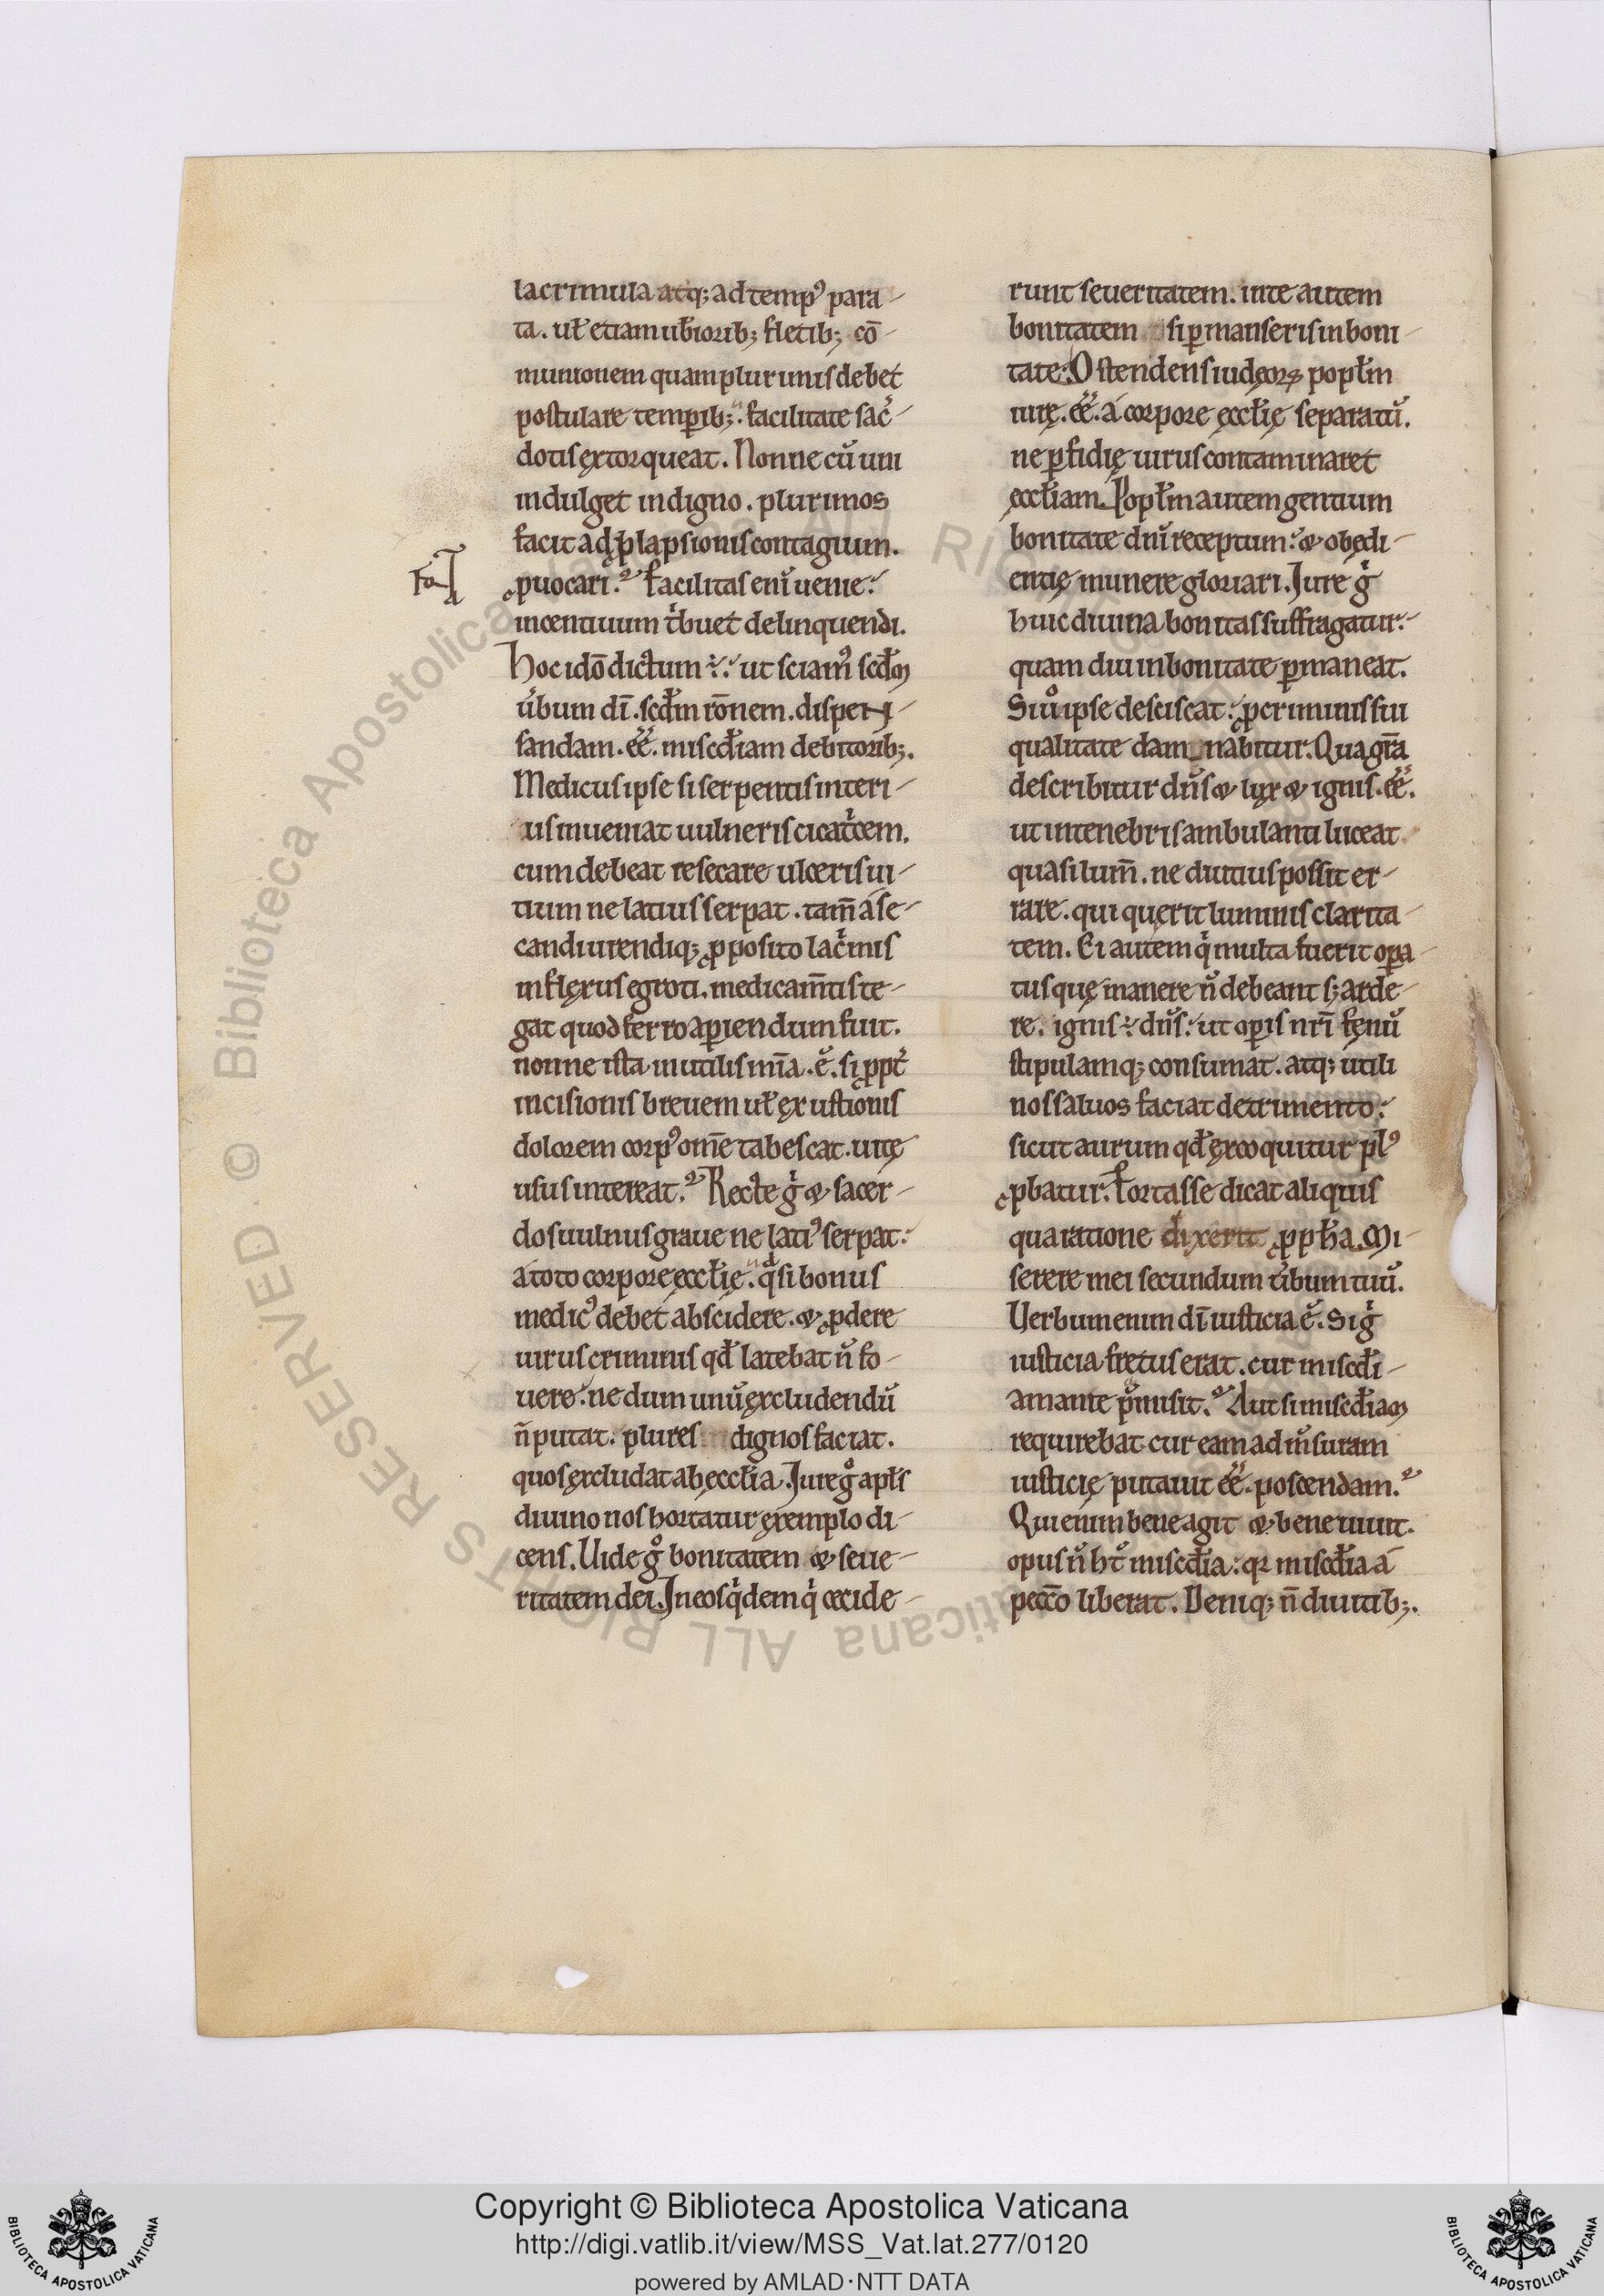 lacrimula atq; ad temp⁹ para-
ta. ul̵ etiam ub̾iorib; fletib; cō-
munionem quam plurimis debet
postulare temꝑib;. facilitate sac̾-
dotis ęxtorqueat. Nonne cū uni
indulget indigno. plurimos
facit ad ꝓlapsionis contagium.
ꝓuocari. Facilitas enī uenie.
incentiuum tͥbuet delinquendi.
Hoc idō dictum ÷. ut sciam⁹ scd̄m
u̾bum dī. scd̄m rōnem. dispen-
sandam. ee̅. miscd̄iam debitorib;.
Medicus ipse si serpentis interi-
us inueniat uulneris cicatͥcem.
cum debeat resecare ulceris ui-
tium ne latius serpat. tam̄ a se-
candi urendiq; ꝓposito lacͥmis
inflęxus egroti. medicam̄tis te-
gat quod ferro aꝑiendum fuit.
nonne ista inutilis mīa. ē. si ꝓpt̾
incisionis breuem ul̵ ęxustionis
dolorem corp⁹ om̄e tabescat. uitę
usus intereat. Recte gͥ & sacer-
dos uulnus graue ne lati⁹ serpat.
a toto corpore ęccl̵ię. qͣsi bonus
medic⁹ debet abscidere. & ꝓdere
uirus criminis qd̄ latebat n̄ fo-
uere. ne dum unū ęxcludendū
n̄ putat. plures dignos faciat.
quos ęxcludat ab ęccl̵ia. Iure gͦ apl̵s
diuino nos hortatur ęxemplo di-
cens. Uide gͦ bonitatem & seue-
ritatem dei. In eos qͥdem qͥ cecide-
runt seueritatem. in te autem
bonitatem si ꝑmanseris in boni-
tate. Ostendens iudęoꝝ popl̵m
iurę. ee̅. a corpore ęccl̵ię separatū.
ne ꝑfidię uirus contaminaret
ęccl̵iam. Popl̵m autem gentium
bonitate dn̄i receptum. & obędi-
entię munere gloriari. Iure gͥ
huic diuina bonitas suffragatur.
quam diu in bonitate ꝑmaneat.
Si uͦ ipse desciscat. ꝓ criminis sui
qualitate damnabitur. Qua gr̄a
describitur dn̄s & lux & ignis. ee̅.
ut in tenebris ambulanti luceat
quasi lum̄. ne diutius possit er-
rare. qui quęrit luminis clarita-
tem. Ei autem qͥ multa fuerit oꝑa-
tus quę manere n̄ debeant s; arde-
re. ignis ÷ dn̄s. ut oꝑis nr̄i fęnū
stipulamq; consumat. atq; utili
nos saluos faciat detrimento.
sicut aurum qd̄ ęxcoquitur pl⁹
ꝓbatur. Fortasse dicat aliquis
qua ratione dixerit ꝓph̄a. Mi-
serere mei secundum u̾bum tuū.
Uerbum enim dī iusticia ē. Si gͥ
iusticia fretus erat. cur miscd̄i-
am ante p̄misit. Aut si miscd̄iam
requirebat cur eam ad m̄suram
iusticię putauit ee̅. poscendam.
Qui enim bene agit & bene uiuit.
opus n̄ ht̄ miscd̄ia. qꝛ miscd̄ia a
pecc̄o liberat. Deniq; n̄ diuitib;.
Copyright © Biblioteca Apostolica Vaticana
http://digi.vatlib.it/view/MSS_Vat.lat.277/0120
powered by AMLAD·NTT DATA
BIBLIOTECA APOSTOLICA VATICANA
BIBLIOTECA APOSTOLICA VATICANA